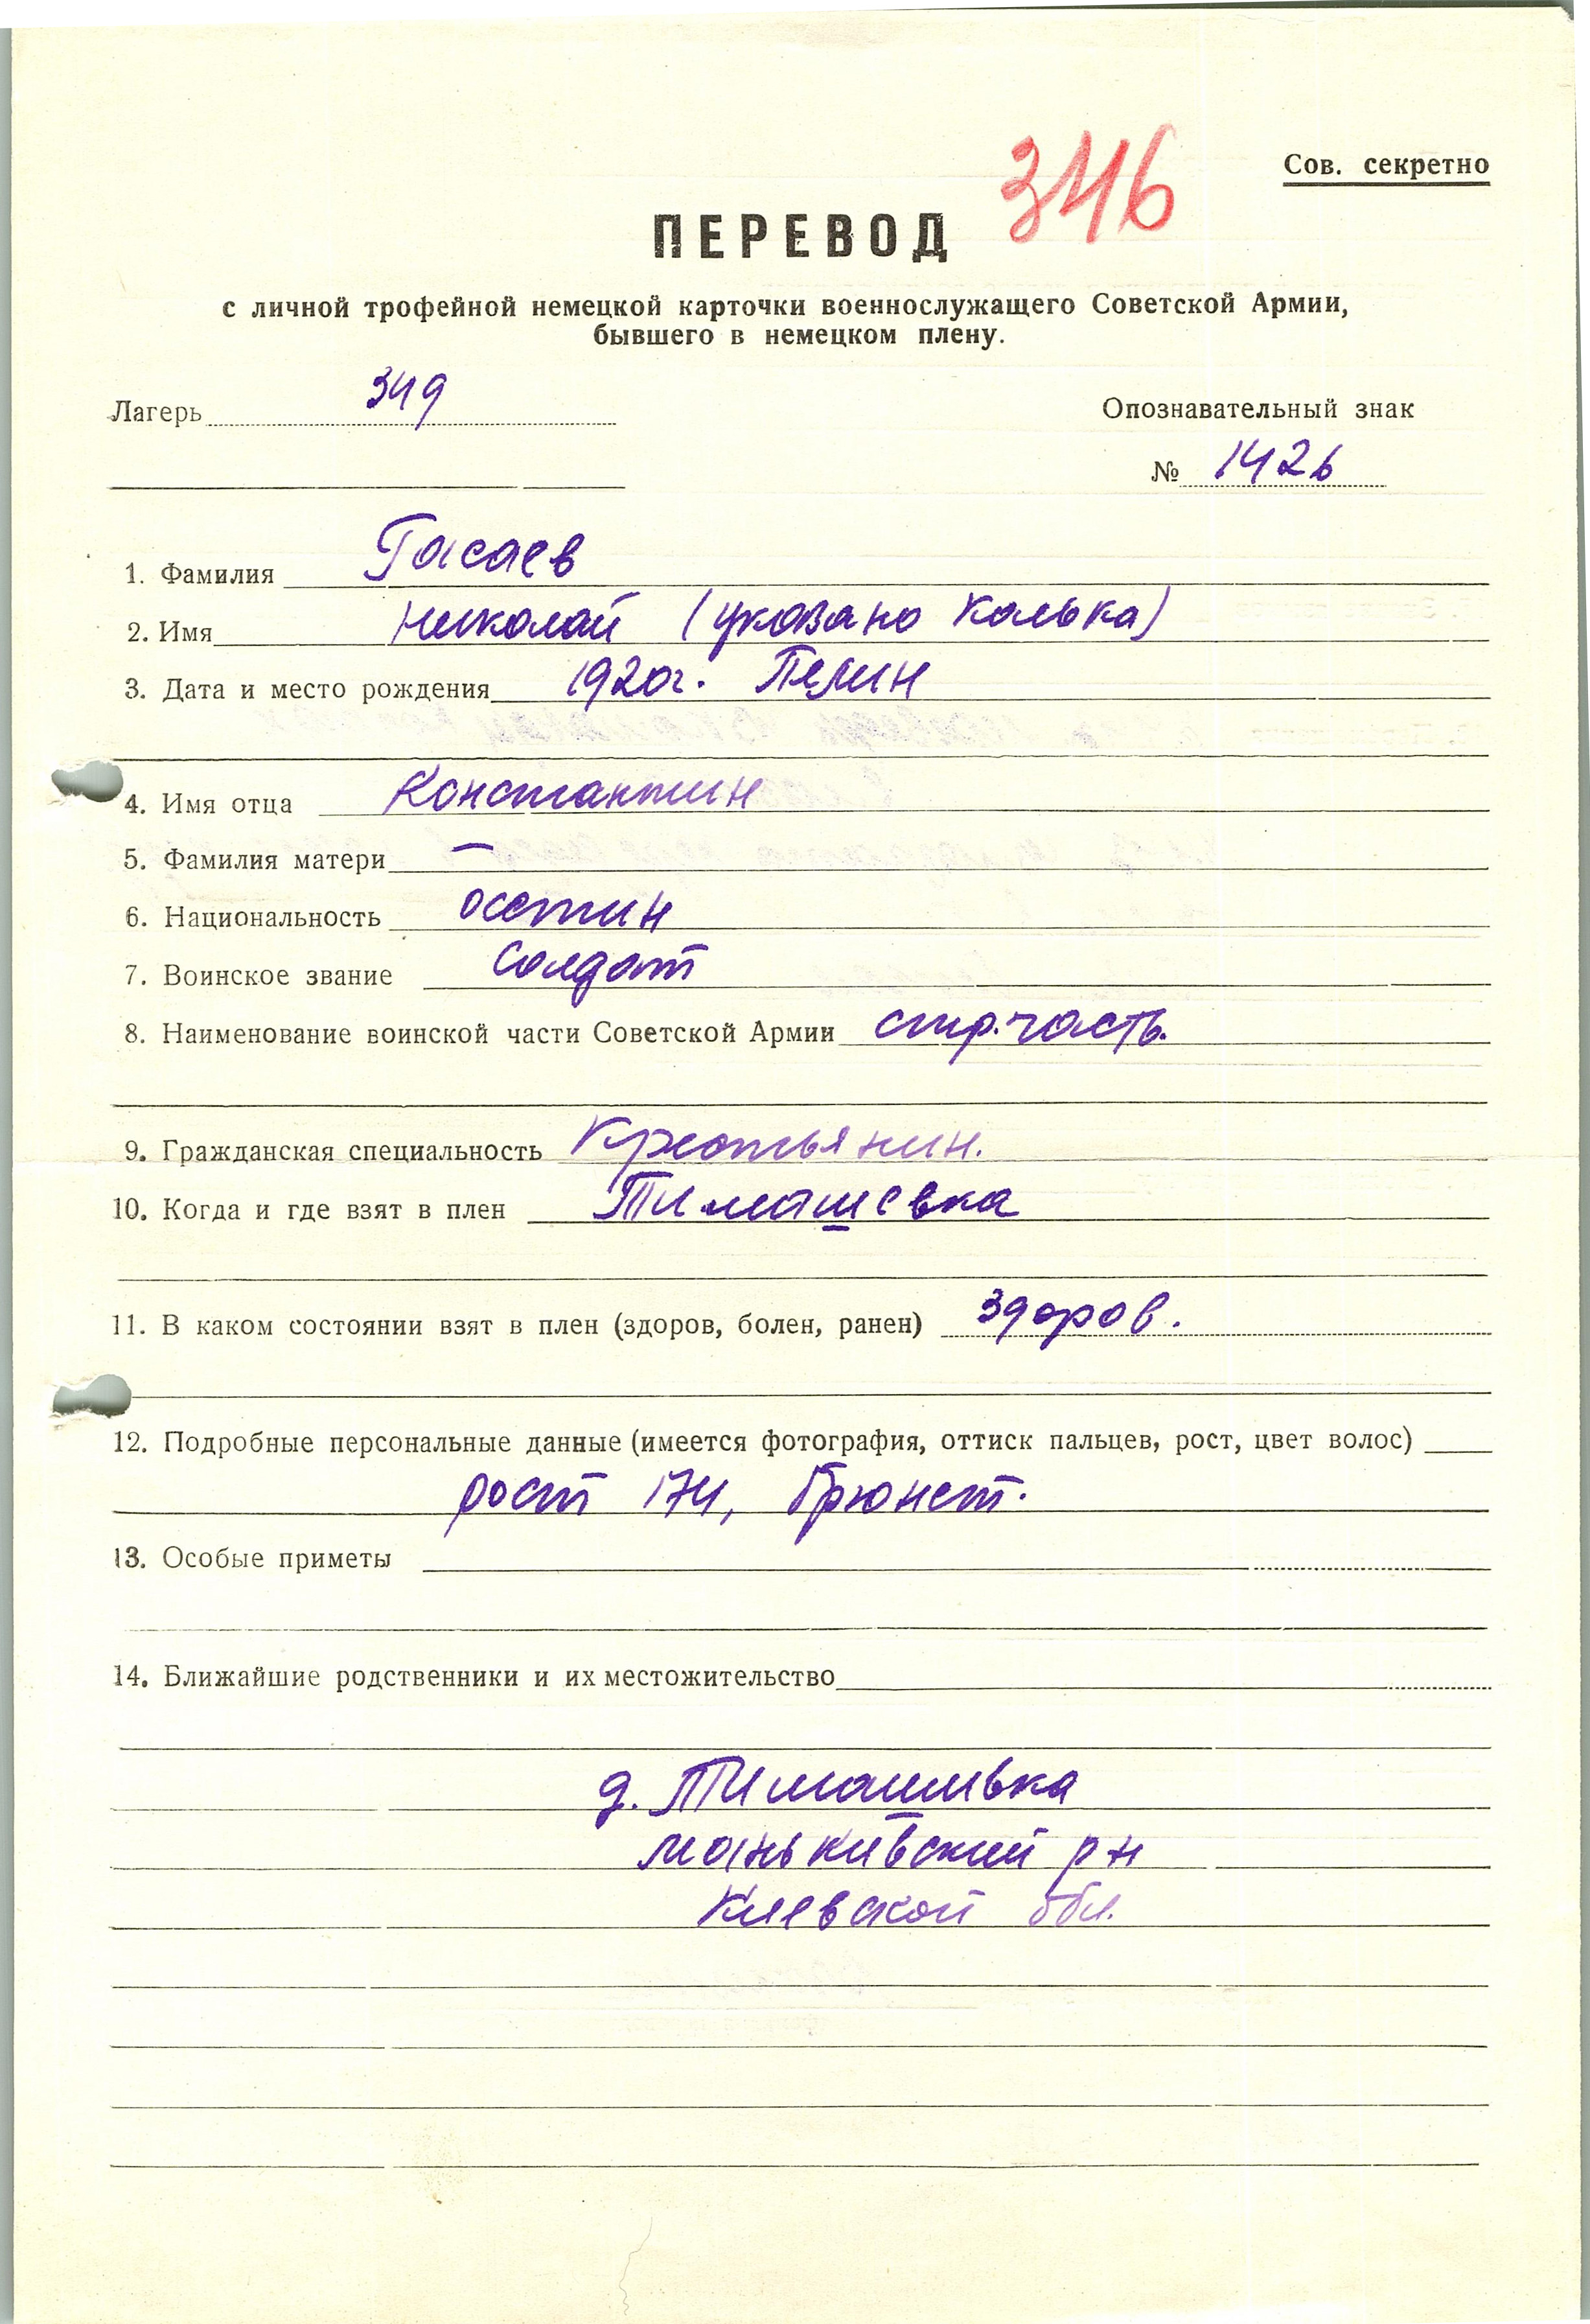 346
Сов. секретно
ПЕРЕВОД
с личной трофейной немецкой карточки военнослужащего Советской Армии,
бывшего в немецком плену.
Лагерь 349
Опознавательный знак
№ 1426
1. Фамилия Гасаев
2. Имя Николай (указано Колька)
3. Дата и место рождения 1920г.
4. Имя отца Константин
5. Фамилия матери —
6. Национальность осетин
7. Воинское звание Солдат
8. Наименование воинской части Советской Армии стр. часть.
9. Гражданская специальность Крестьянин.
10. Когда и где взят в плен Тимашевка
11. В каком состоянии взят в плен (здоров, болен, ранен) здоров.
12. Подробные персональные данные (имеется фотография, оттиск пальцев, рост, цвет волос)
рост 174, брюнет.
13. Особые приметы
14. Ближайшие родственники и их местожительство
д. Тимашивка
Маньківский р-н
Киевской обл.